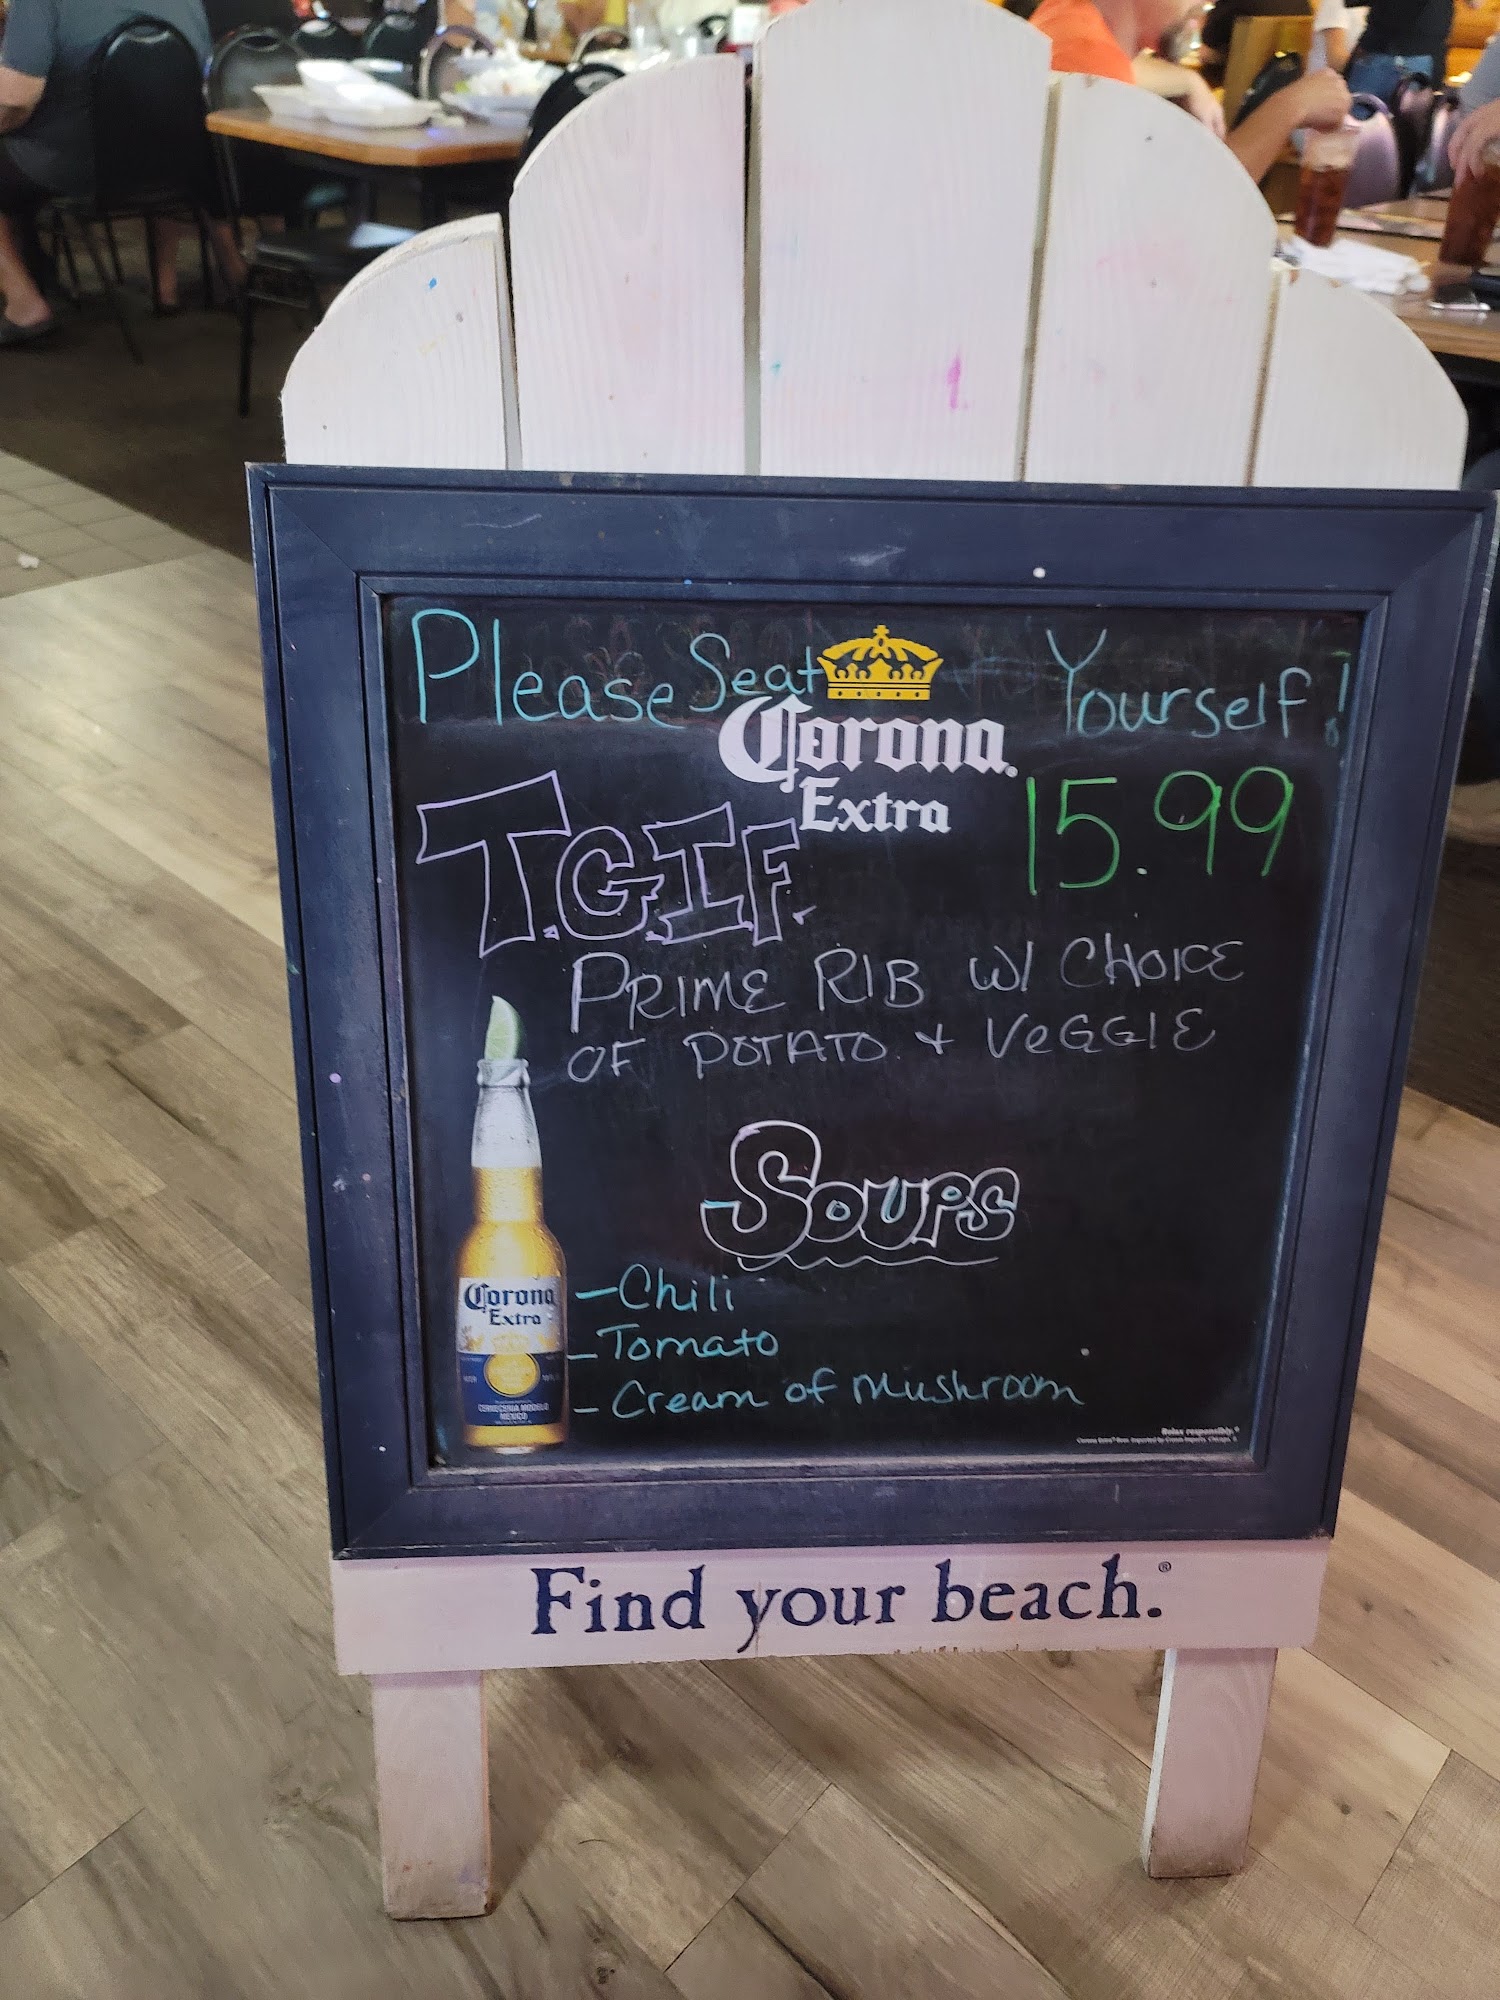 Please Seat Yourself!
Corona
Extra
15.99
T.G.I.F.
PRIME RIB W/ CHOICE
OF POTATO + VEGGIE
SOUPS
Corona
Extra
- Chili
- Tomato
- Cream of Mushroom
CERVECERIA MODELO
MEXICO
Relax responsibly.®
Find your beach.®